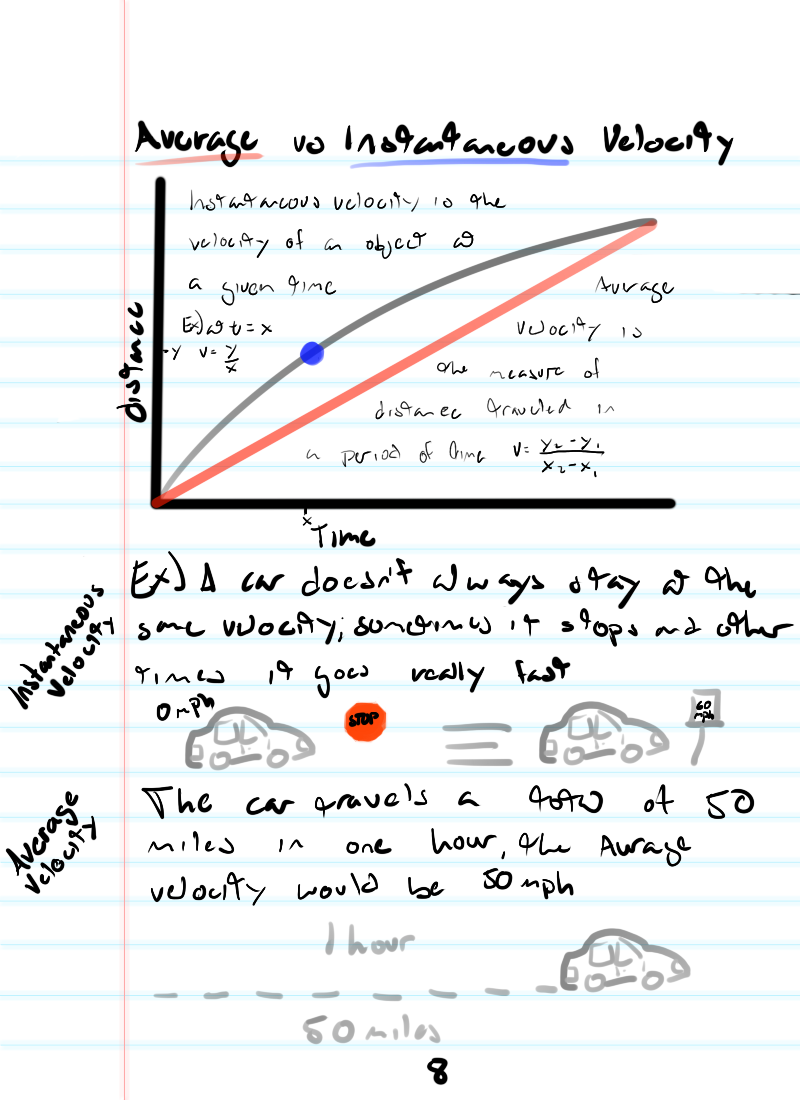 Average vs Instantaneous Velocity
Instantaneous velocity is the
velocity of an object at
a given time
Ex) at t = x
y v = y/x
Average
velocity is
the measure of
distance traveled in
a period of time v = y₂-y₁/x₂-x₁
distance
x
Time
Instantaneous
Velocity
Ex) A car doesn't always stay at the
same velocity; sometimes it stops and other
times it goes really fast
0 mph
STOP
60
mph
Average
Velocity
The car travels a total of 50
miles in one hour, the Average
velocity would be 50 mph
1 hour
50 miles
8